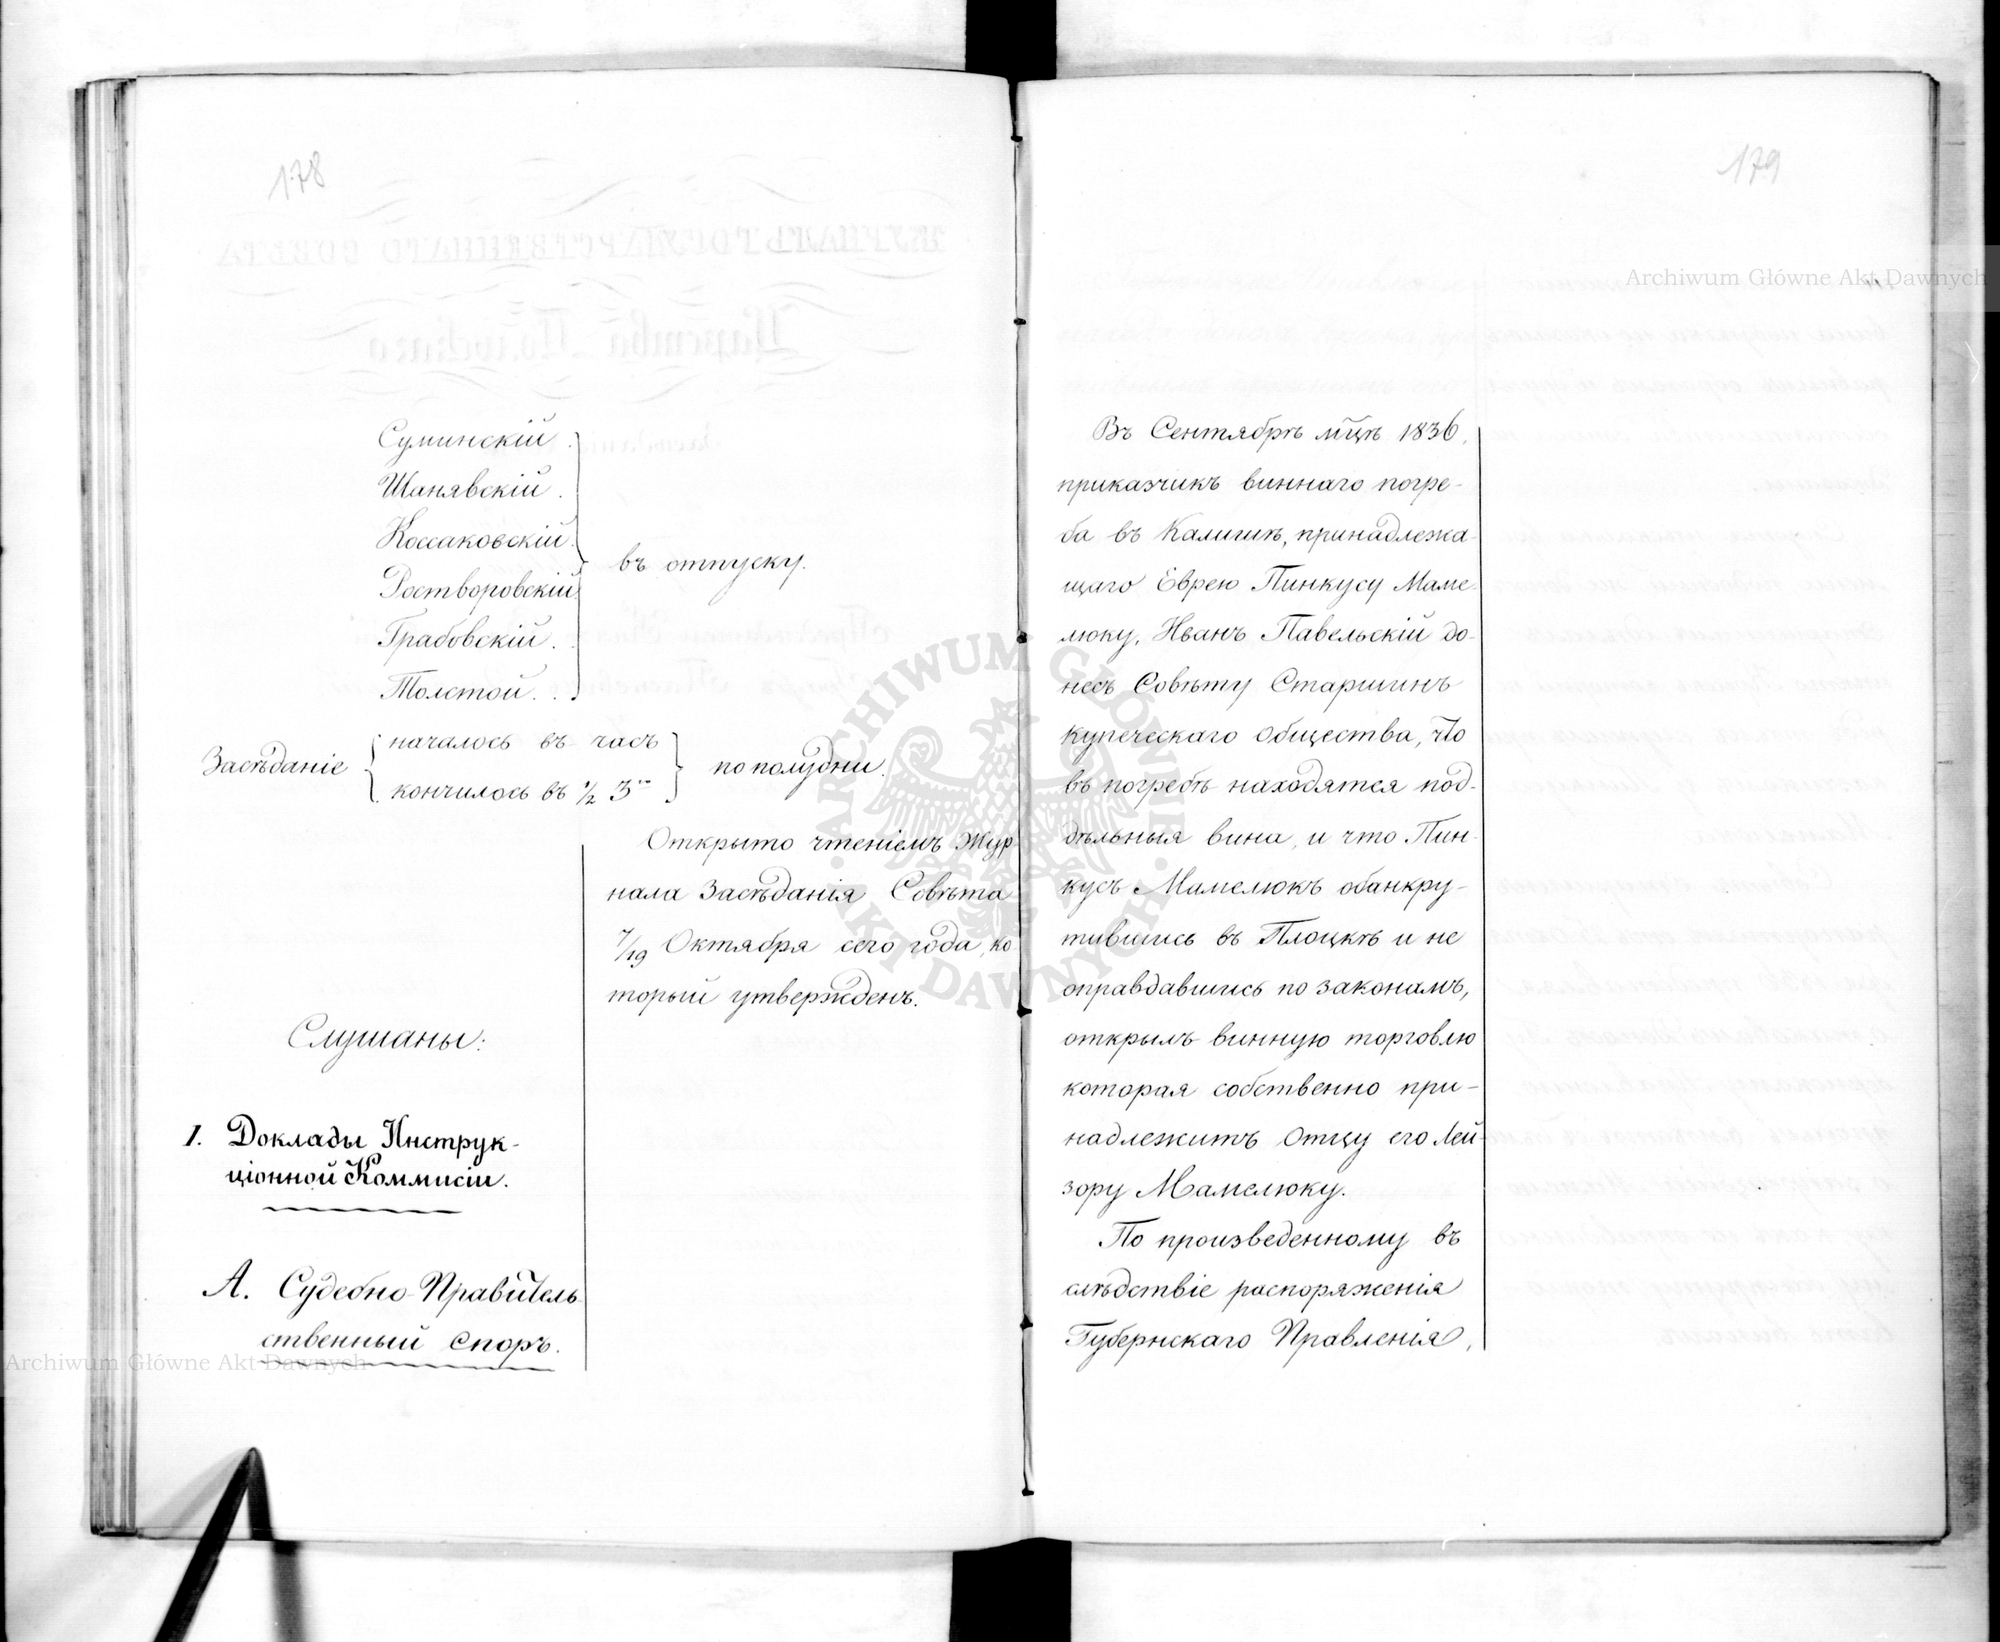 178
Суминскій.
Шанявскій.
Коссаковскій.
Ростворовскій
Грабовскій.
Толстой. .
въ отпуску.
Засѣданіе
началось въ часъ
кончилось въ ½ 3го
по полудни.
Открыто чтеніемъ Жур
нала Засѣданія Совѣта
7/19 Октября сего года, ко
торый утвержденъ.
Слушаны:
1. Доклады Инструк-
ціонной Коммисіи.
А. Судебно-Правитель
ственный споръ.
179
Въ Сентябрѣ мцѣ 1836,
приказчикъ виннаго погре-
ба въ Калишѣ, принадлежа-
щаго Еврею Пинкусу Маме-
люку, Иванъ Павельскій до-
несъ Совѣту Старшинъ
Купеческаго Общества, что
въ погребѣ находятся под-
дѣльныя вина, и что Пин-
кусъ Мамелюкъ обанкру-
тившись въ Плоцкѣ и не
оправдавшись по законамъ,
открылъ винную торговлю
которая собственно при-
надлежитъ Отцу его Лей-
зору Мамелюку.
По произведенному въ
слѣдствіе распоряженія
Губернскаго Правленія,
Archiwum Główne Akt Dawnych
Archiwum Główne Akt Dawnych
ARCHIWUM GŁÓWNE AKT DAWNYCH